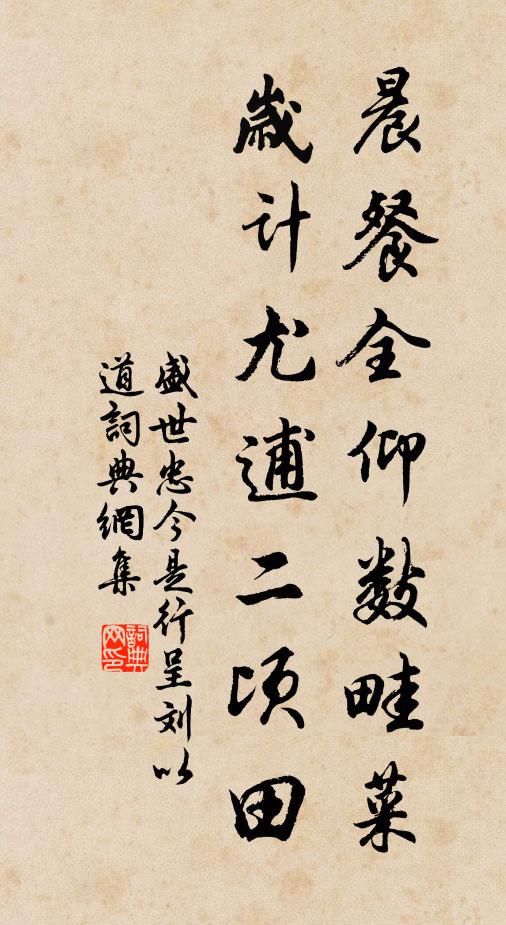 晨餐全仰数畦菜
歳计尤逋二顷田
盛世忠今是行呈刘以
道詞典網集
詞典网印